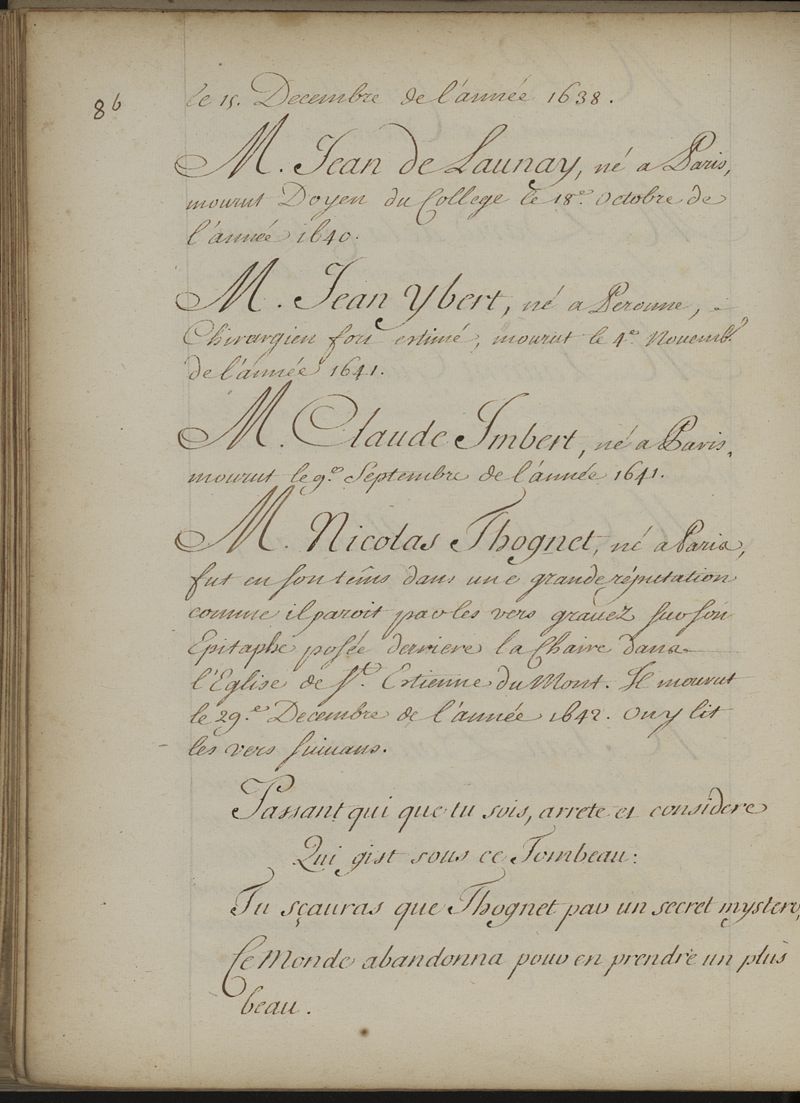 86
le 15. Decembre de l'année 1638.
M. Jean de Launay, né a Paris,
mourut Doyen du College le 18.e Octobre de
l'année 1640.
M. Jean Ybert, né a Peronne,
Chirurgien fort estimé, mourut le 4.e Nouemb.
de l'année 1641.
M. Claude Imbert, né a Paris,
mourut le 9.e Septembre de l'année 1641.
M. Nicolas Thognet, né a Paris,
fut en son tems dans une grande réputation
comme il paroit par les vers grauez sur son
Epitaphe posée derriere la Chaire dans
l'Eglise de St. Estienne du Mont. Il mourut
le 29.e Decembre de l'année 1642. On y lit
les vers suiuans.
Passant qui que tu sois, arrete et considere
Qui gist sous ce Tombeau:
Tu sçauras que Thognet par un secret mystere,
Ce Monde abandonna pour en prendre un plus
beau.